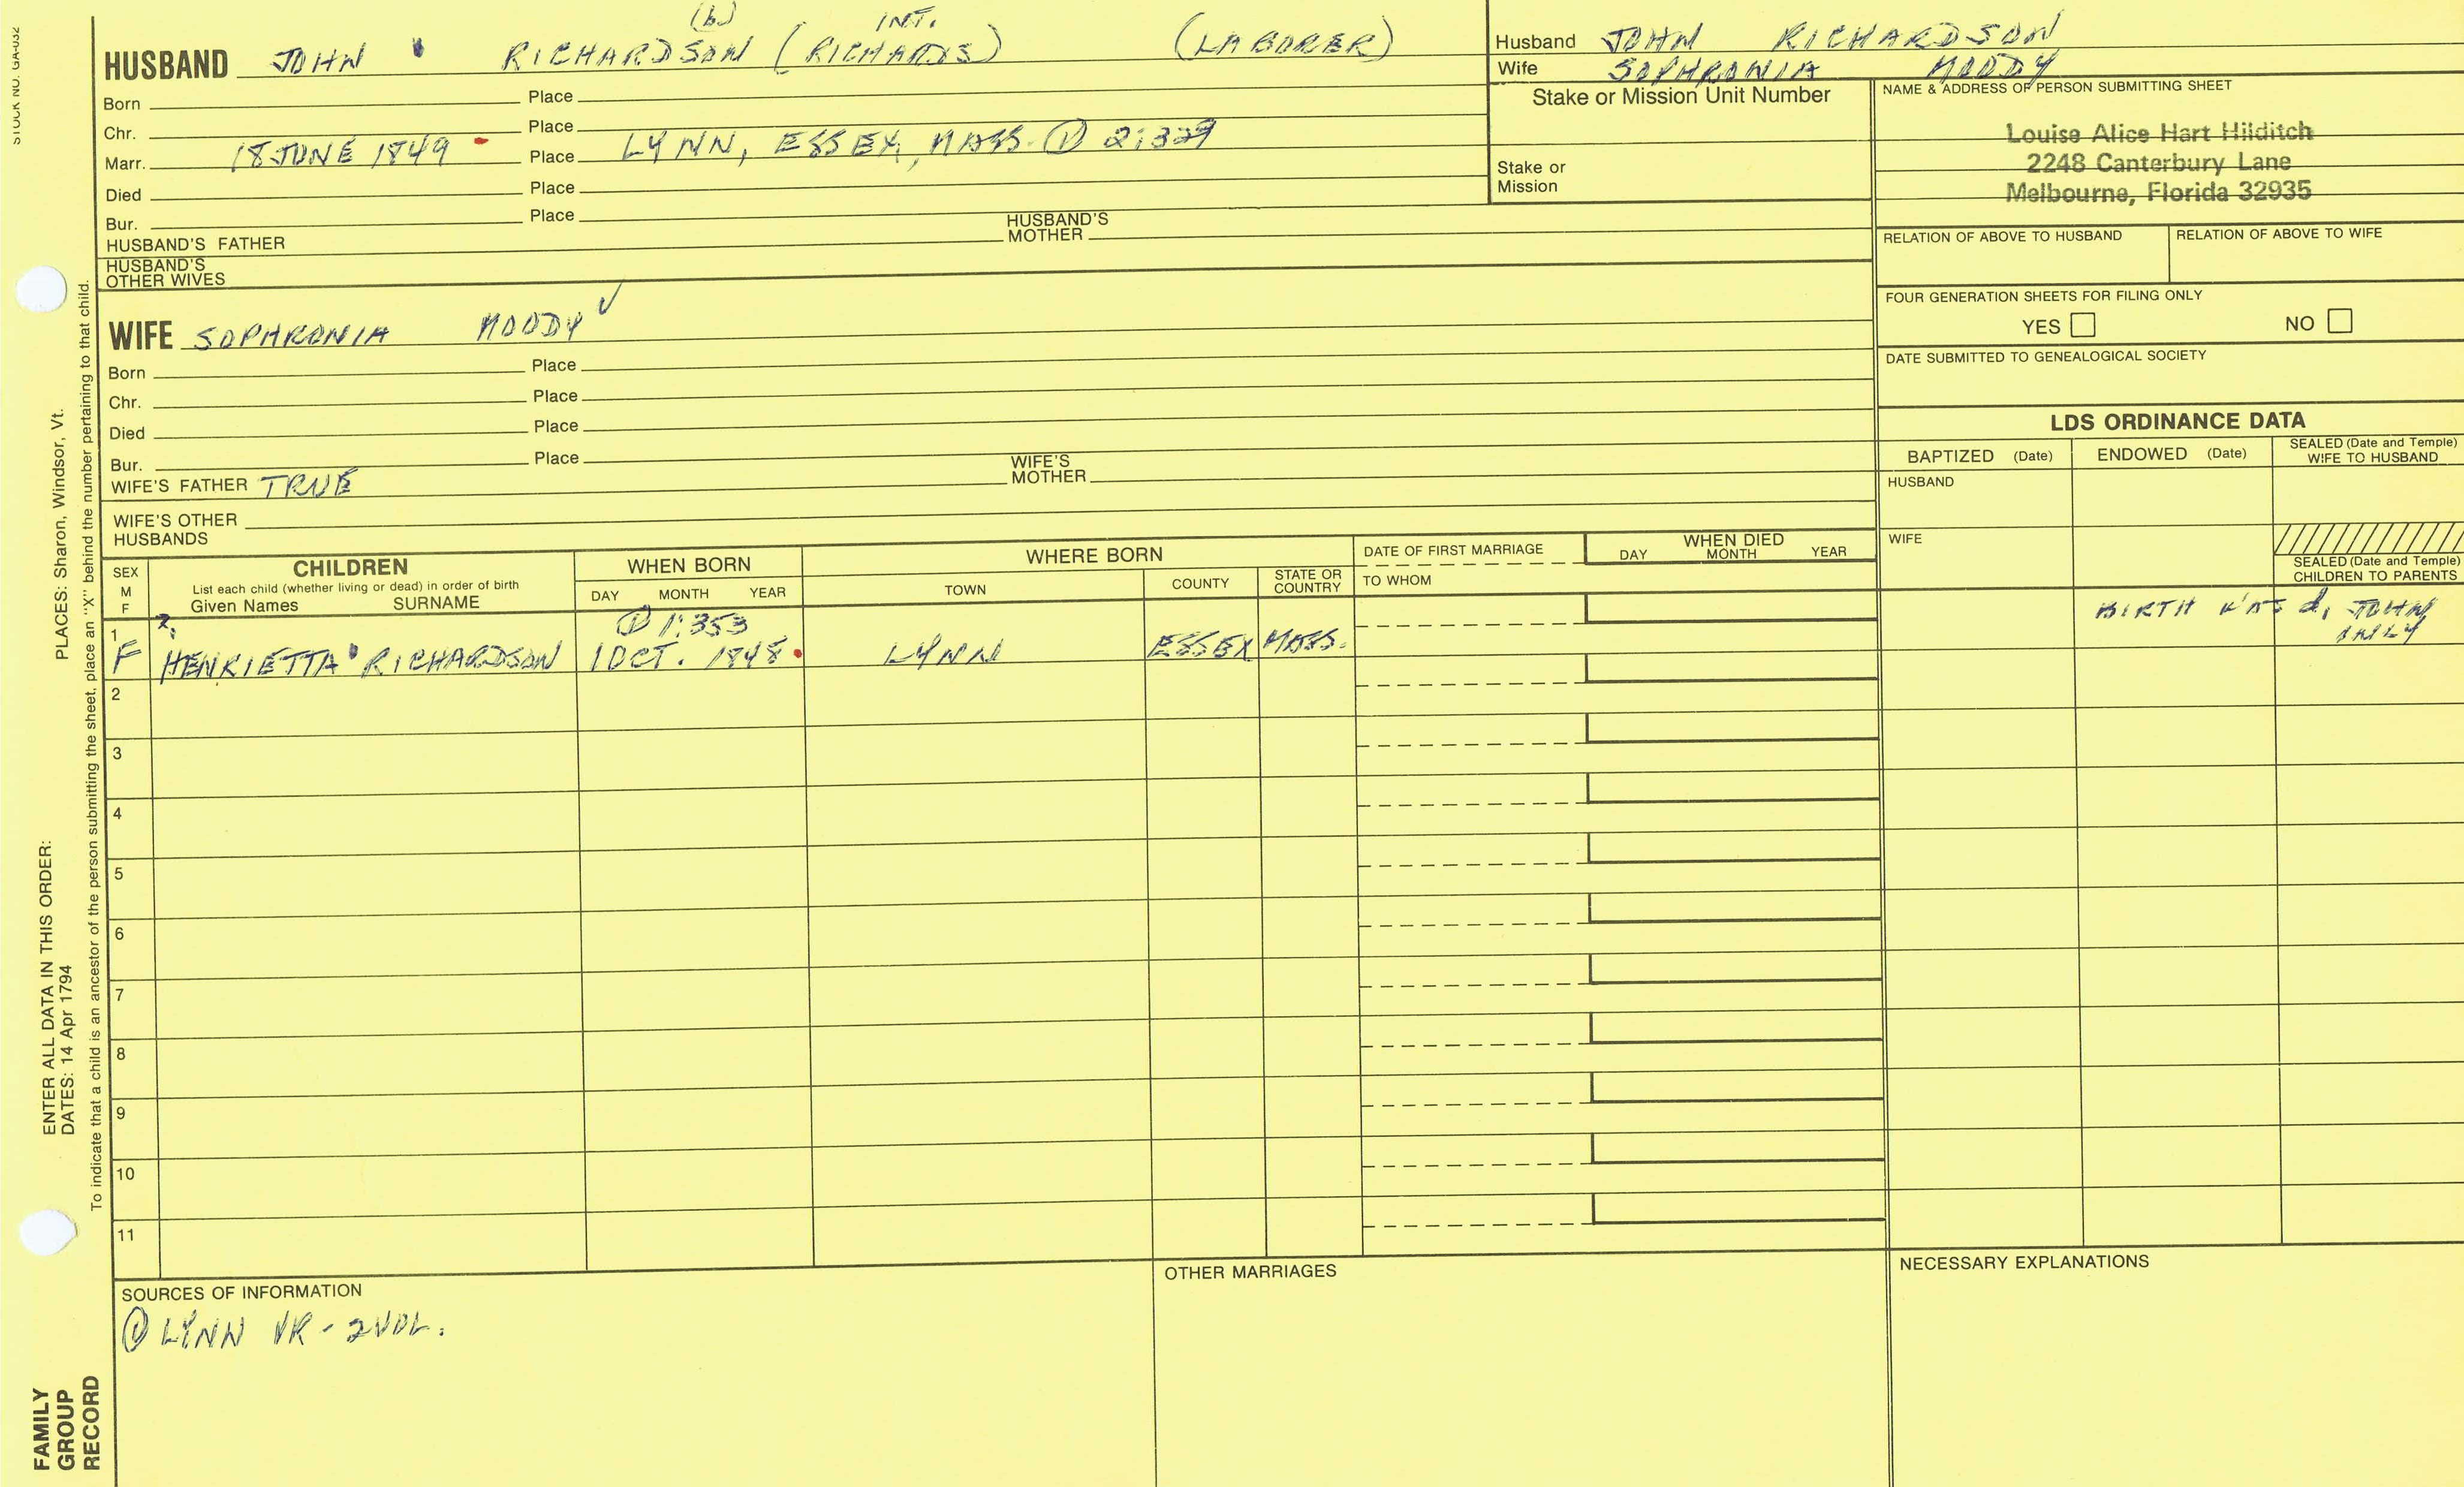 STOCK NO. GA-032
(b) INT.
HUSBAND JOHN RICHARDSON (RICHARDS) (LABORER)
Born Place
Chr. Place
Marr. 18 JUNE 1849 Place LYNN, ESSEX, MASS. ① 2:329
Died Place
Bur. Place
HUSBAND'S FATHER HUSBAND'S MOTHER
HUSBAND'S OTHER WIVES
WIFE SOPHRONIA MOODY √
Born Place
Chr. Place
Died Place
Bur. Place
WIFE'S FATHER TRUE WIFE'S MOTHER
WIFE'S OTHER HUSBANDS
Husband JOHN RICHARDSON
Wife SOPHRONIA MOODY
Stake or Mission Unit Number
Stake or Mission
NAME & ADDRESS OF PERSON SUBMITTING SHEET
Louise Alice Hart Hilditch
2248 Canterbury Lane
Melbourne, Florida 32935
RELATION OF ABOVE TO HUSBAND RELATION OF ABOVE TO WIFE
FOUR GENERATION SHEETS FOR FILING ONLY
YES NO
DATE SUBMITTED TO GENEALOGICAL SOCIETY
LDS ORDINANCE DATA
BAPTIZED (Date) ENDOWED (Date) SEALED (Date and Temple) WIFE TO HUSBAND
HUSBAND
WIFE
SEALED (Date and Temple) CHILDREN TO PARENTS
SEX M F
CHILDREN
List each child (whether living or dead) in order of birth
Given Names SURNAME
WHEN BORN
DAY MONTH YEAR
WHERE BORN
TOWN COUNTY STATE OR COUNTRY
DATE OF FIRST MARRIAGE
TO WHOM
WHEN DIED
DAY MONTH YEAR
① 1:353
1 F HENRIETTA RICHARDSON 1 OCT. 1848 LYNN ESSEX MASS. BIRTH d. JOHN ONLY
2
3
4
5
6
7
8
9
10
11
SOURCES OF INFORMATION
① LYNN VR - 2 VOL.
OTHER MARRIAGES
NECESSARY EXPLANATIONS
ENTER ALL DATA IN THIS ORDER:
DATES: 14 Apr 1794 PLACES: Sharon, Windsor, Vt.
To indicate that a child is an ancestor of the person submitting the sheet, place an "X" behind the number pertaining to that child.
FAMILY
GROUP
RECORD